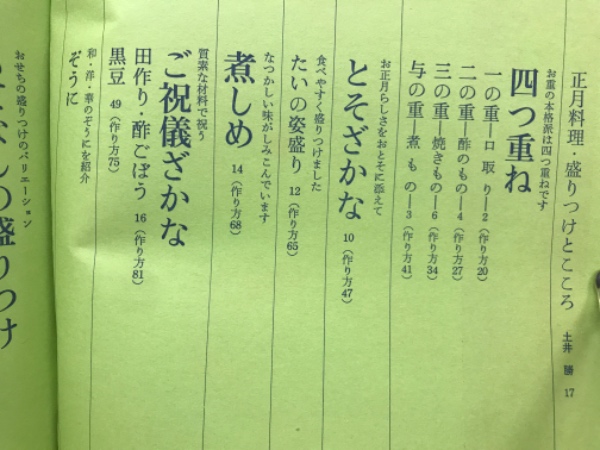 正月料理・盛りつけとこころ 土井 勝 17
お重の本格派は四つ重ねです
四つ重ね
一の重―口取り―2（作り方20）
二の重―酢のもの―4（作り方27）
三の重―焼きもの―6（作り方34）
与の重―煮もの―3（作り方41）
お正月らしさをおとそに添えて
とそざかな 10（作り方47）
食べやすく盛りつけました
たいの姿盛り 12（作り方65）
なつかしい味がしみこんでいます
煮しめ 14（作り方68）
質素な材料で祝う
ご祝儀ざかな
田作り・酢ごぼう 16（作り方81）
黒豆 49（作り方75）
和・洋・華のぞうにを紹介
ぞうに
おせちの盛りつけのバリエーション
の盛りつけ